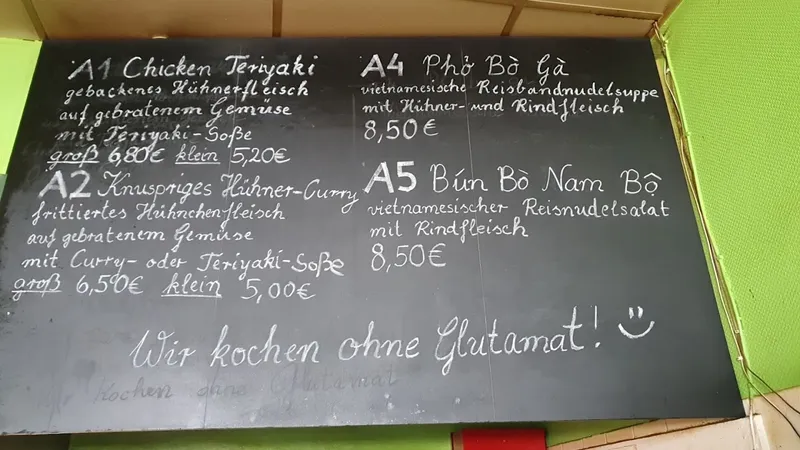 A1 Chicken Teriyaki
gebackenes Hühnerfleisch
auf gebratenem Gemüse
mit Teriyaki-Soße
groß 6,80€ klein 5,20€
A2 Knuspriges Hühner-Curry
frittiertes Hühnchenfleisch
auf gebratenem Gemüse
mit Curry- oder Teriyaki-Soße
groß 6,50€ klein 5,00€
A4 Phở Bò Gà
vietnamesische Reisbandnudelsuppe
mit Hühner- und Rindfleisch
8,50€
A5 Bún Bò Nam Bộ
vietnamesischer Reisnudelsalat
mit Rindfleisch
8,50€
Wir kochen ohne Glutamat!
Kochen ohne Glutamat